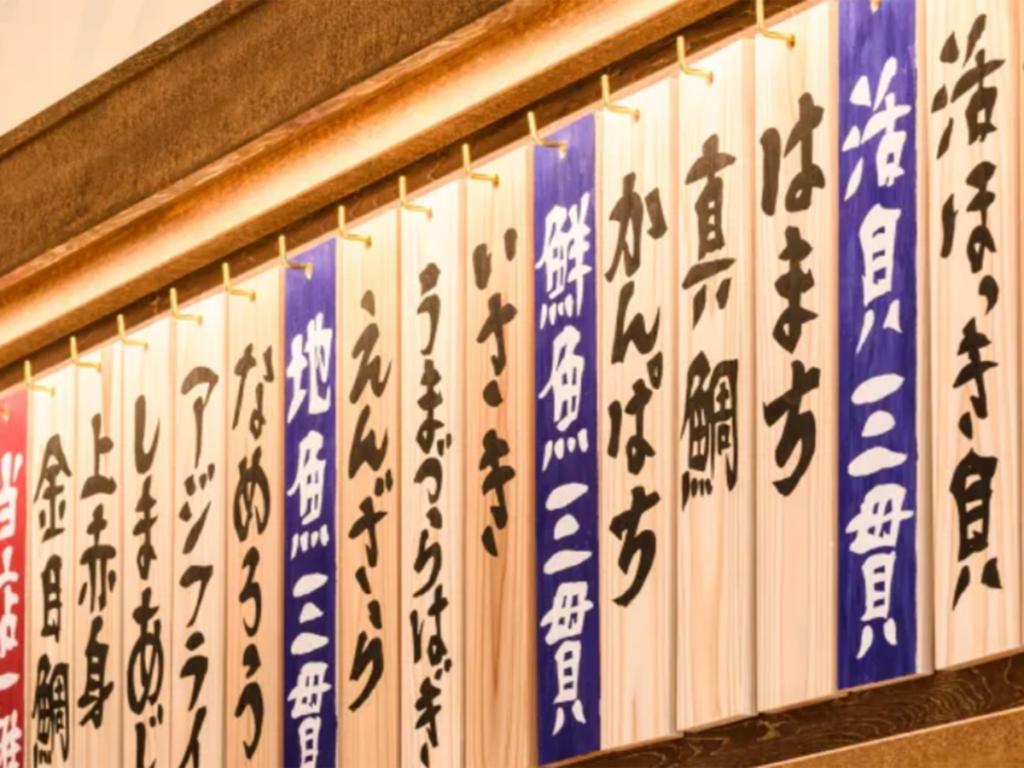 活ほっき貝
活貝三貫
はまち
真鯛
かんぱち
鮮魚三貫
いさき
うまづらはぎ
えんざら
地魚三貫
なめろう
アジフライ
しまあじ
上赤身
金目鯛
当店一